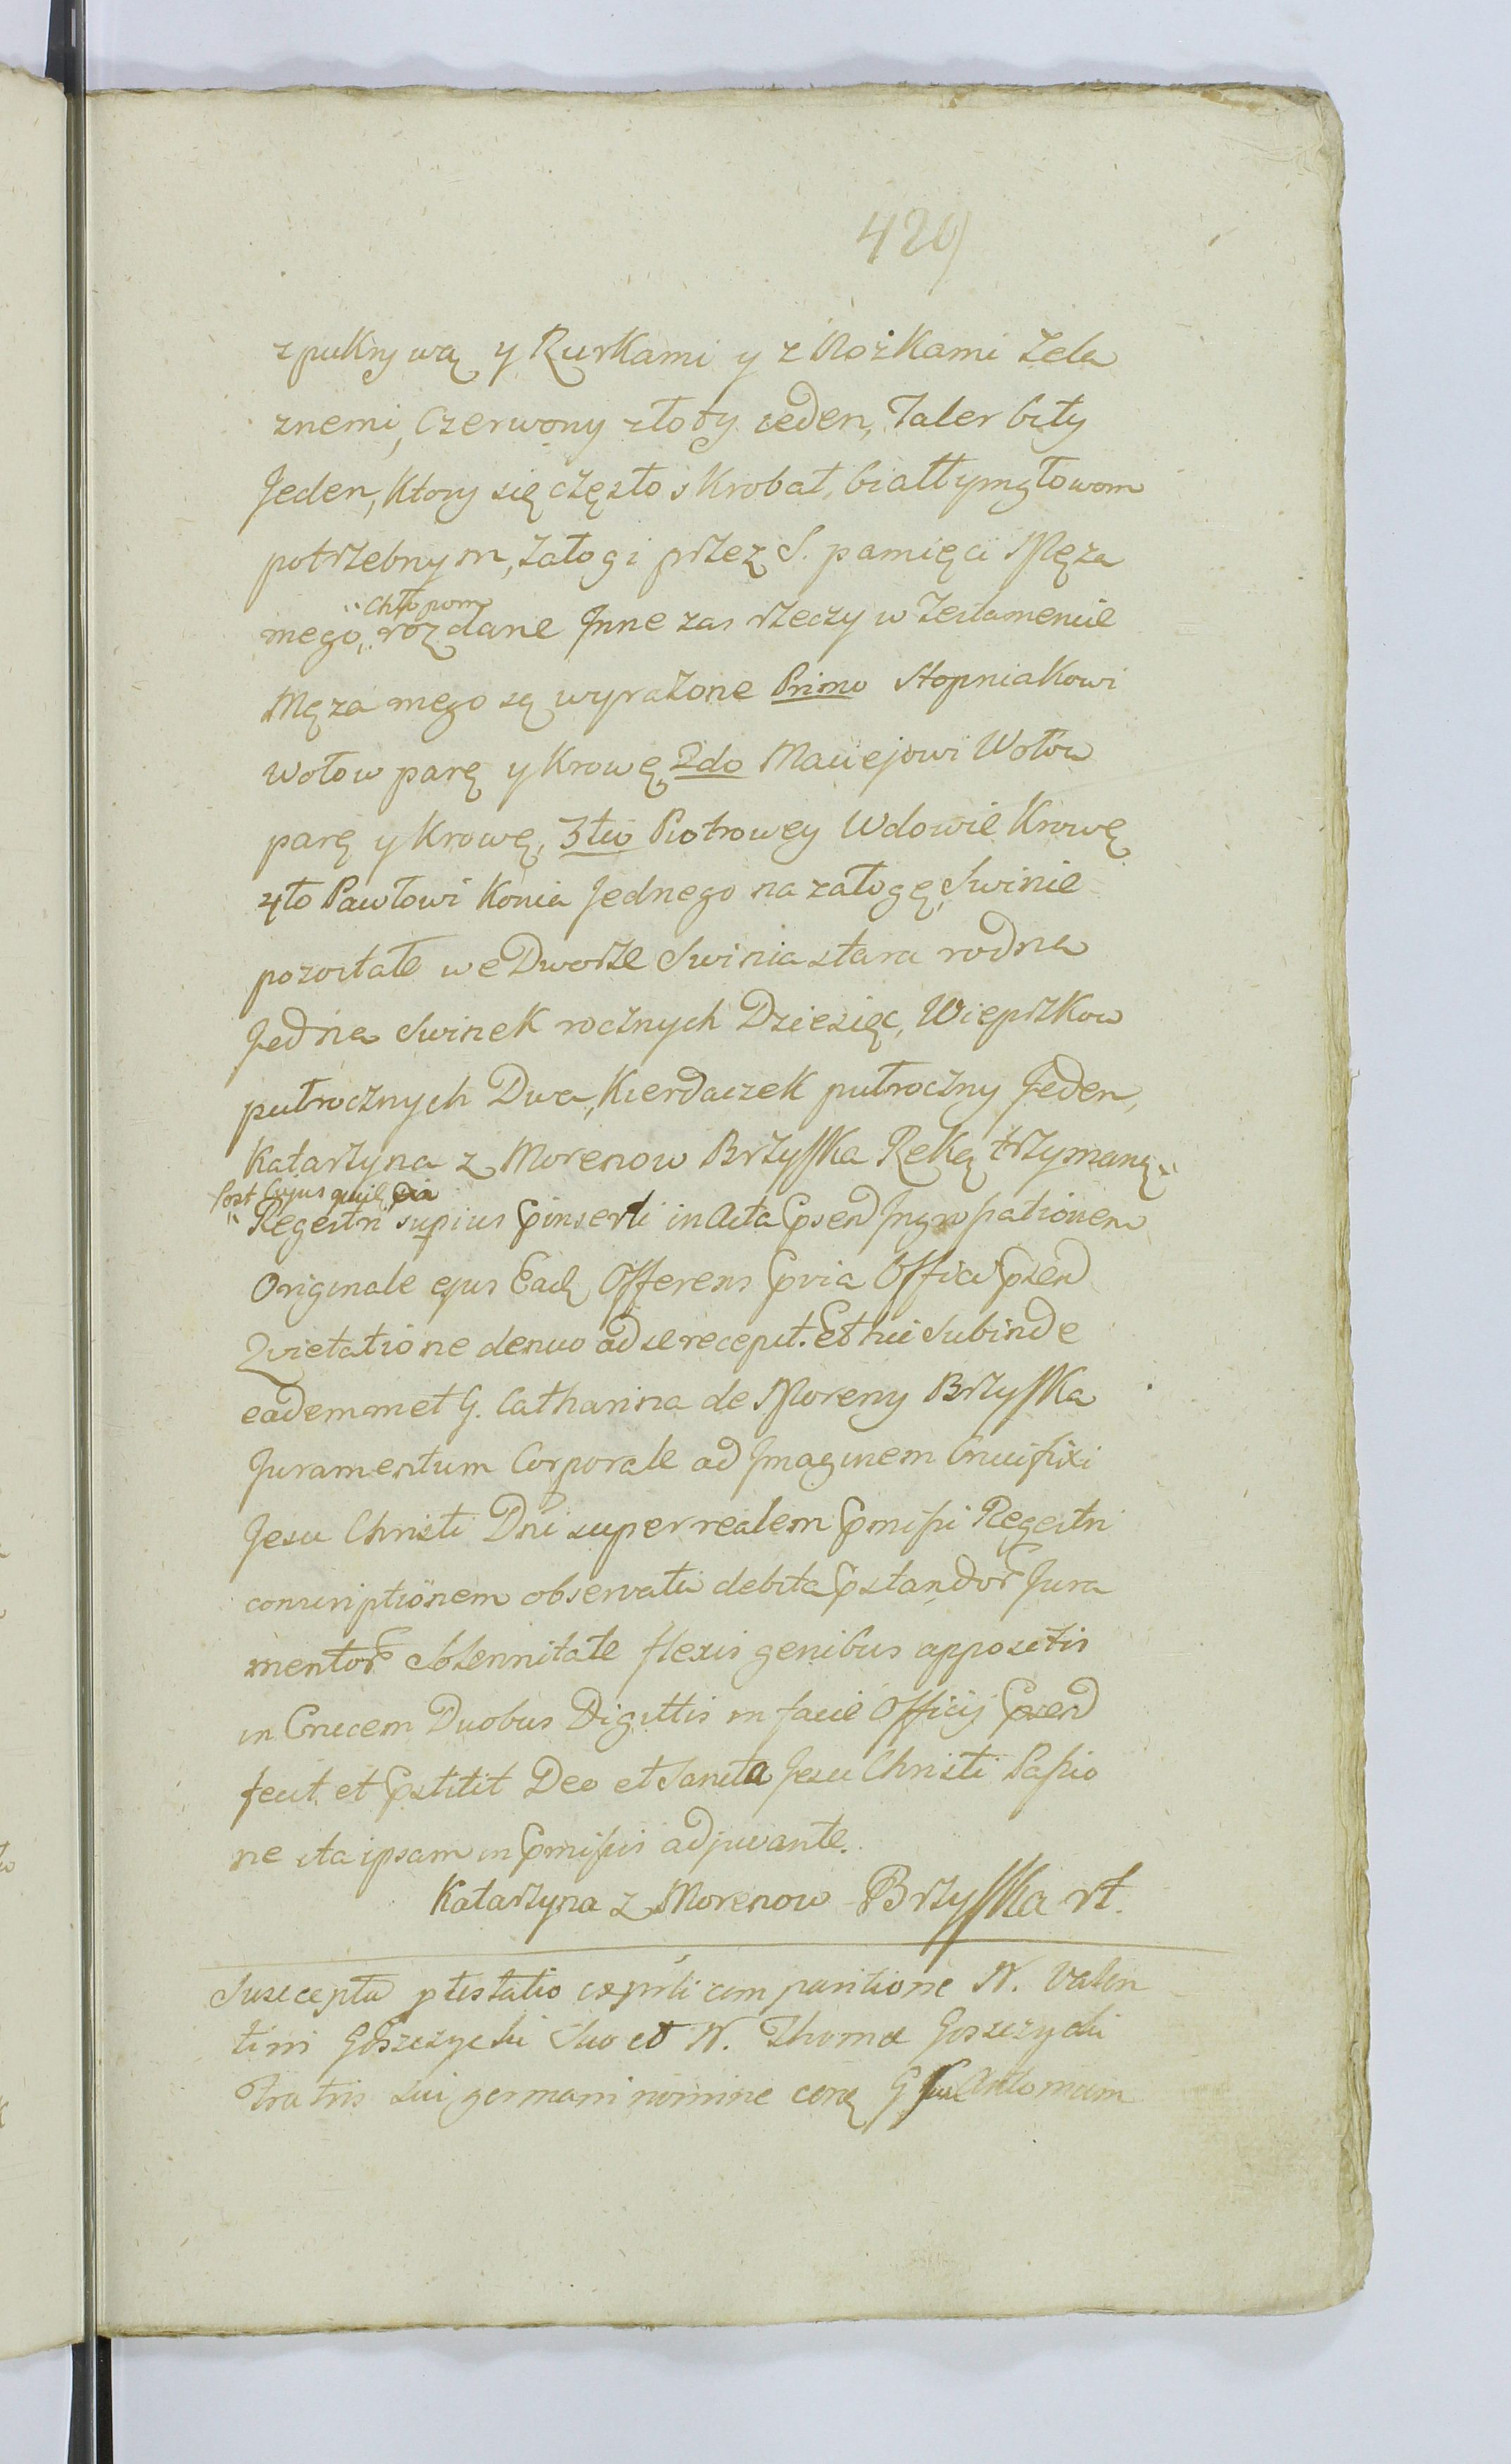 429
z pukrywą y Rurkami y z Nożkami Zela
znemi, Czerwony złoty ieden, Taler bity
Jeden, Ktory się często skrobał, białłymgłowom
potrzebnym, Załogi przez S. pamięci Męza
"Chłopom
mego," rozdane Jnne zas rzeczy w Testamencie
Męza mego są wyrażone Primo Stopniakowi
wołow parę y Krowę, 2do Maciejowi Wołow
parę y Krowę, 3tio Piotrowey Wdowie Krowę
4to Pawłowi Konia Jednego na załogę, Swinie
pozostałe we Dworze Swinia stara rodna
Jedna Swinek rocznych Dziesięc, Wieprzkow
pułrocznych Dwa, Kierdaczek pułroczny Jeden,
Katarzyna z Morenow Brzyska Reką trzymaną "
Post Cujus quid
" Regestri supius pinserti in Acta psen Ingrossationem
Originale ejus Eadz Offerens pvia Officii psen
Qvietatione denuo ad se recepit. Et hic Subinde
eademmet G. Catharina de Moreny Brzyska
Juramentum Corporale ad Jmaginem Crucifixi
Jesu Christi Dni super realem pmissi Regestri
conscriptionem observata debita pstandor Jura
mentor Solennitate flexis genibus appositis
in Crucem Duobus Digittis in facie Officij psen
fecit et pstitit Deo et Sancta Jesu Christi Passio
ne ita ipsam in pmissis adjuvante.
Katarzyna z Morenow Brzyska rt.
Suscepta ptestatio cum paritione N. Valen
tini Goszczycki Suo et N. Thomæ Goszczycki
Fratris sui germani nomine cona G Antonium